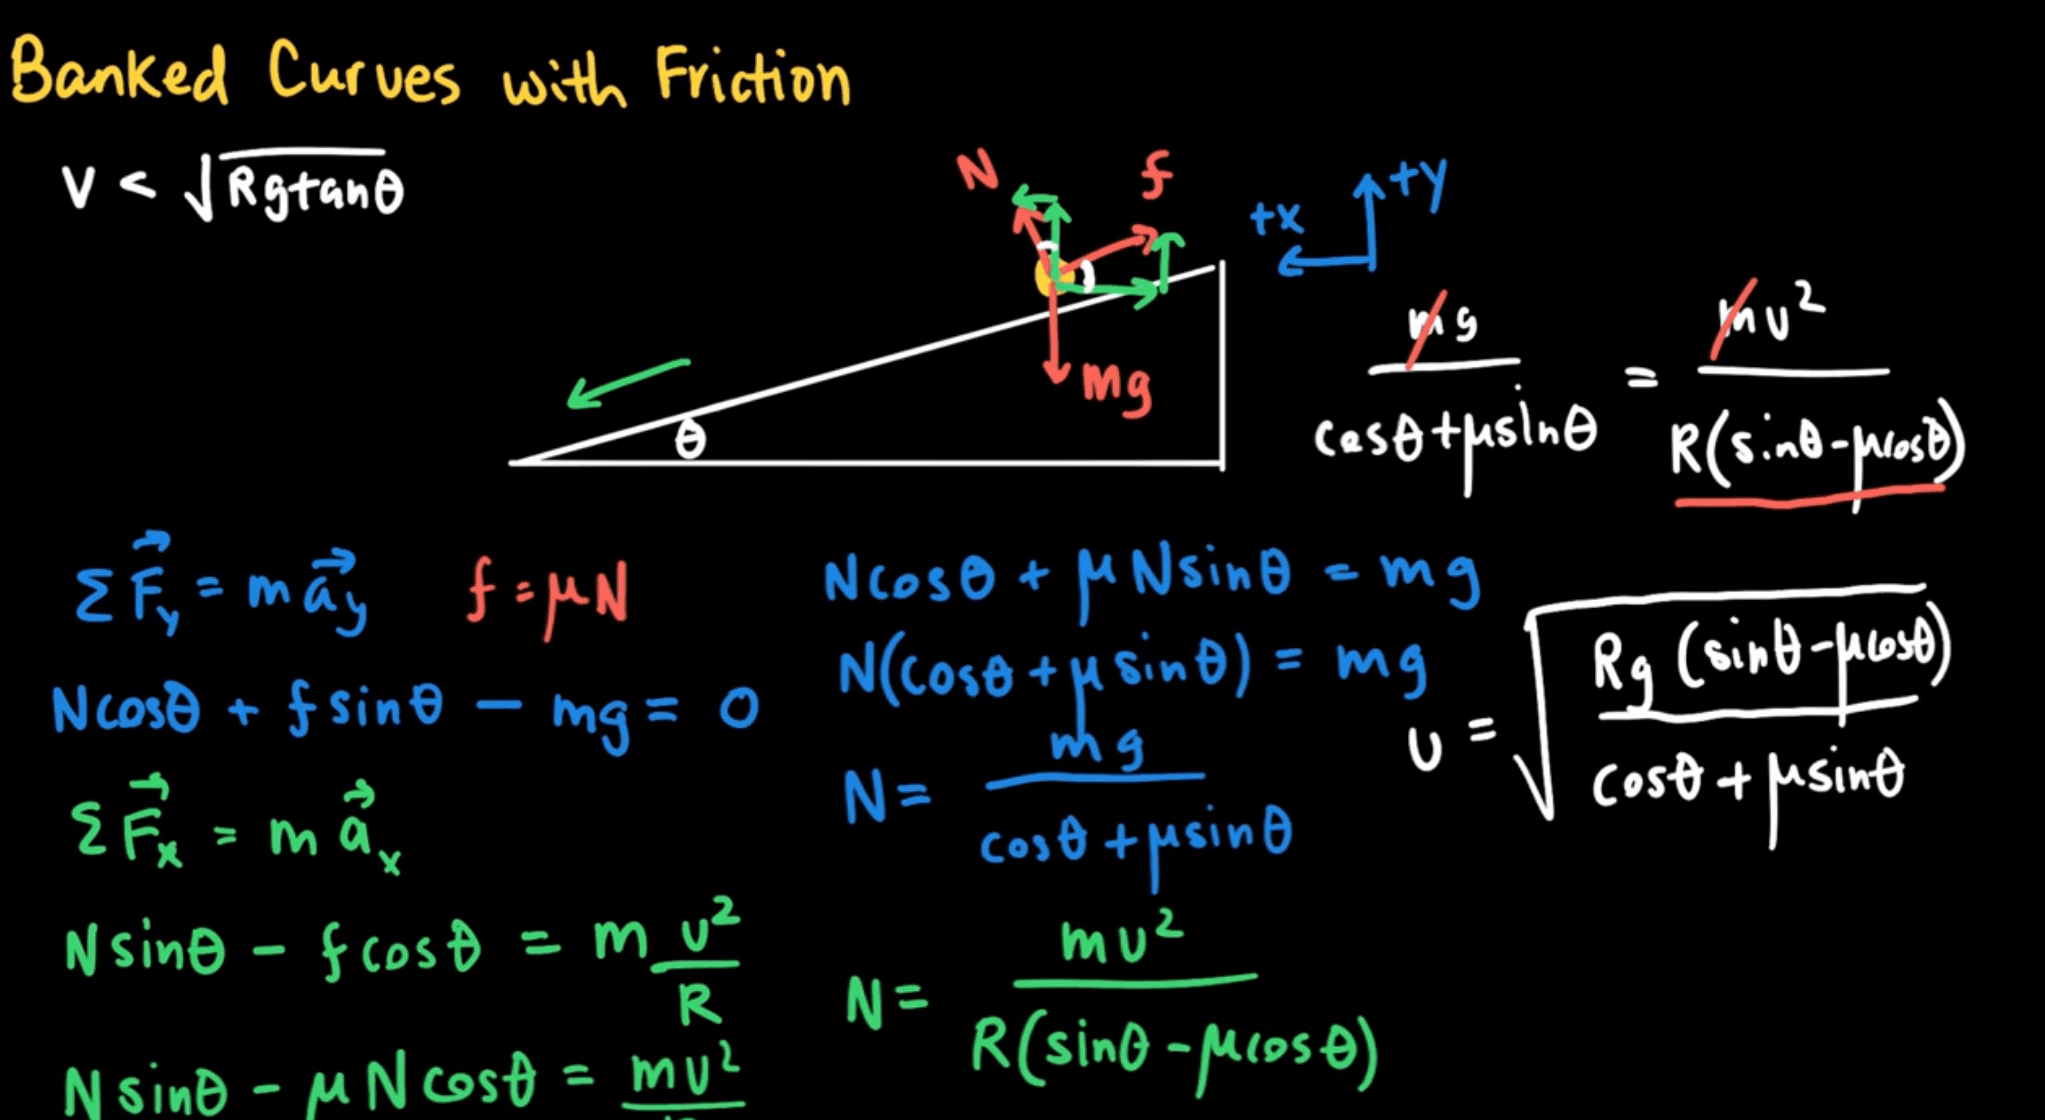 Banked Curves with Friction
v < √Rgtanθ
N
f
+x
+y
mg
θ
mg / cosθ+μsinθ = mv² / R(sinθ-μcosθ)
ΣF⃗y = ma⃗y
f=μN
Ncosθ + fsinθ - mg = 0
ΣF⃗x = ma⃗x
Nsinθ - fcosθ = m v²/R
Nsinθ - μNcosθ = mv²/
Ncosθ + μNsinθ = mg
N(cosθ+μsinθ) = mg
N= mg / cosθ+μsinθ
N= mv² / R(sinθ-μcosθ)
v = √Rg(sinθ-μcosθ) / cosθ+μsinθ